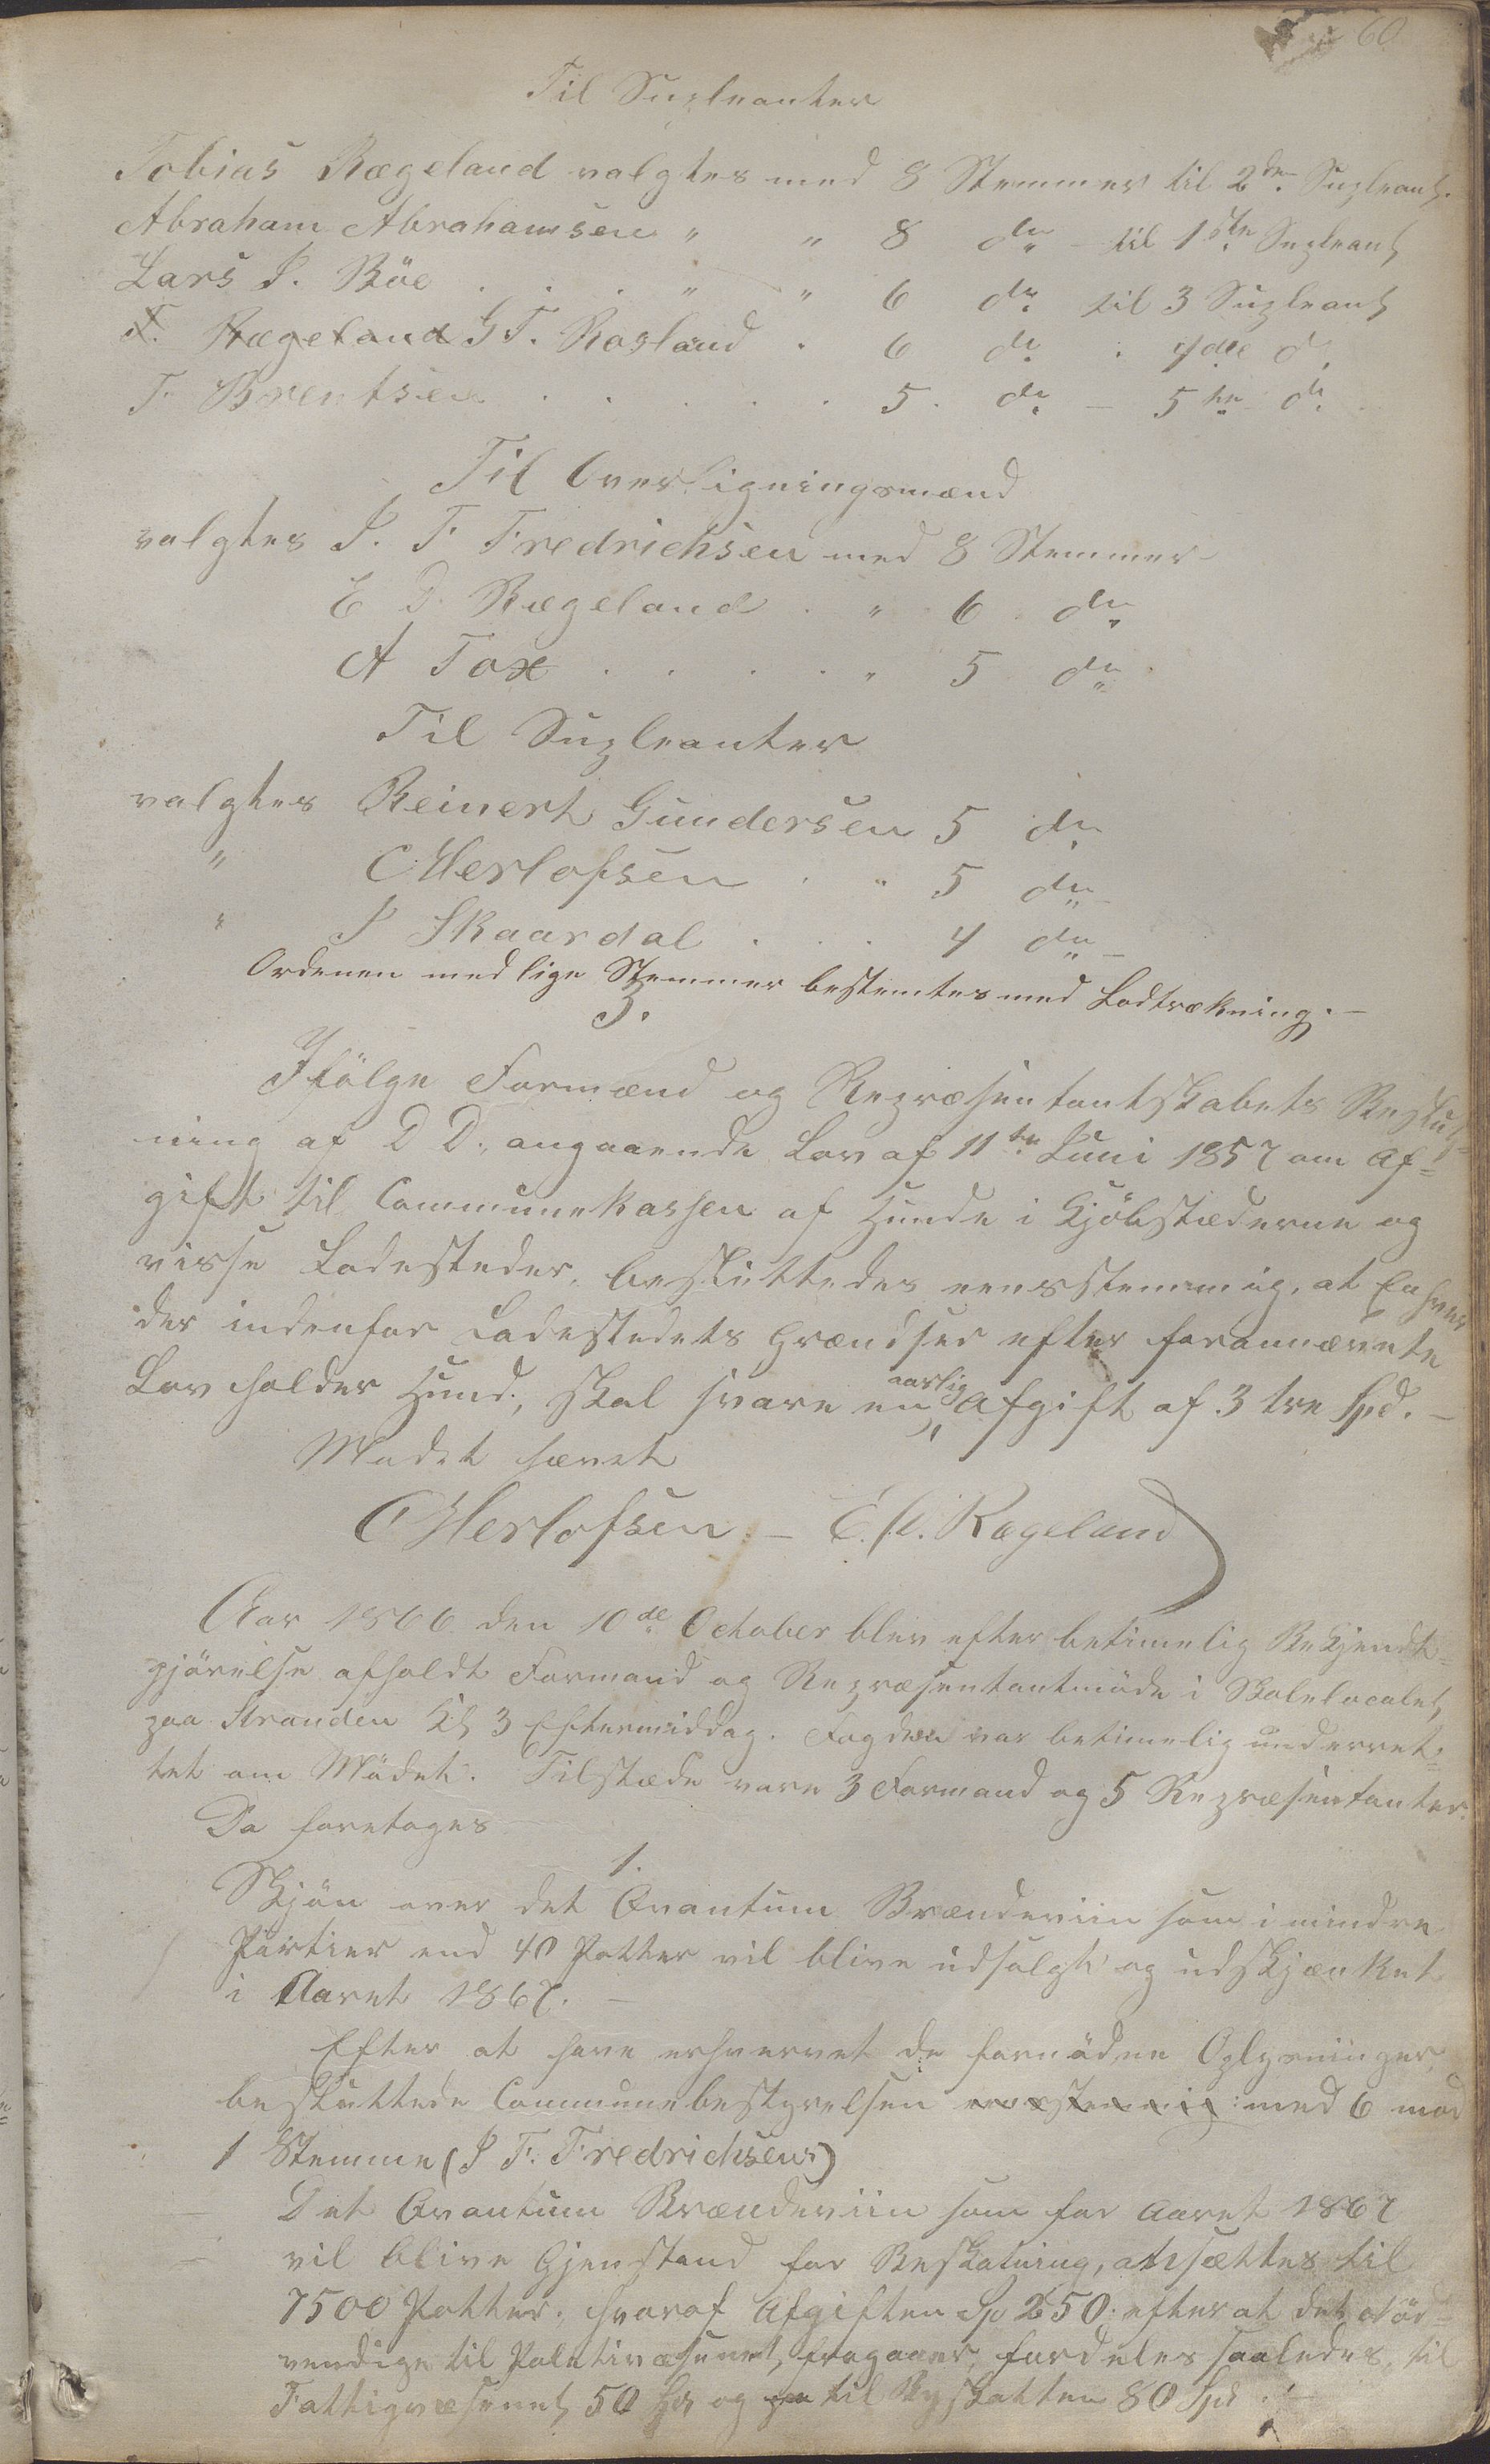 60
Til Supleanter
Tobias Rægeland valgtes med 8 Stemmer til 2den Supleant.
Abraham Abrahamsen " " 8 do - til 1ste Supleant
Lars P. Böe . . . " " 6 do til 3 Supleant
T. Rægeland G T. Rosland . 6 do . 4de do
T. Brentsen . . . . . 5. do - 5te do
Til Overligningsmænd
valgtes P. F Fredrichsen med 8 Stemmer
E D. Rægeland . " 6 do
A Fox . . . . " 5 do
Til Supleanter
valgtes Reinert Gundersen 5 do
" C Herlofsen . " 5 do
" P Skaardal . . . 4 do
Ordenen med lige Stemmer bestemtes med Lodtrækning. -
3.
Ifölge Formænd og Repræsentantskabets Beslut=
ning af D D. angaaende Lov af 11te Juni 1857 om Af=
gift til Communekassen af Hunde i Kjöbstæderne og
visse Ladesteder, besluttedes eensstemmig, at Enhver
der indenfor Ladestedets Grændser efter forannævnte
Lov holder Hund, skal svare en aarlig Afgift af 3 tre Spd. -
Mödet hævet
C Herlofsen - E. D. Rægeland
Aar 1866 den 10de October blev efter betimelig Bekjendt=
gjörelse afholdt Formand og Repræsentantmöde i Skolelocalet
paa Stranden Kl 3 Eftermiddag. Fogden var betimelig underret=
tet om Mödet. Tilstæde vare 3 Formænd og 5 Repræsentanter.
Da foretoges
1.
Skjön over det Qvantum Brændeviin som i mindre
Partier end 40 Potter vil blive udsolgt og udskjænket
i Aaret 1867. -
Efter at have erhvervet de fornödne Oplysninger,
besluttede Communebestyrelsen eenstemmig med 6 mod
1 Stemme (P F. Fredrichsens)
Det Qvantum Brændeviin som for Aaret 1867
vil blive Gjenstand for Beskatning, ansættes til
7500 Potter. hvoraf Afgiften Sp 250. efter at det Nöd=
vendige til Politivæsenet, fragaaer, fordeles saaledes, til
Fattigvæsenet 50 Spd og til Byskatten 80 Spd. -